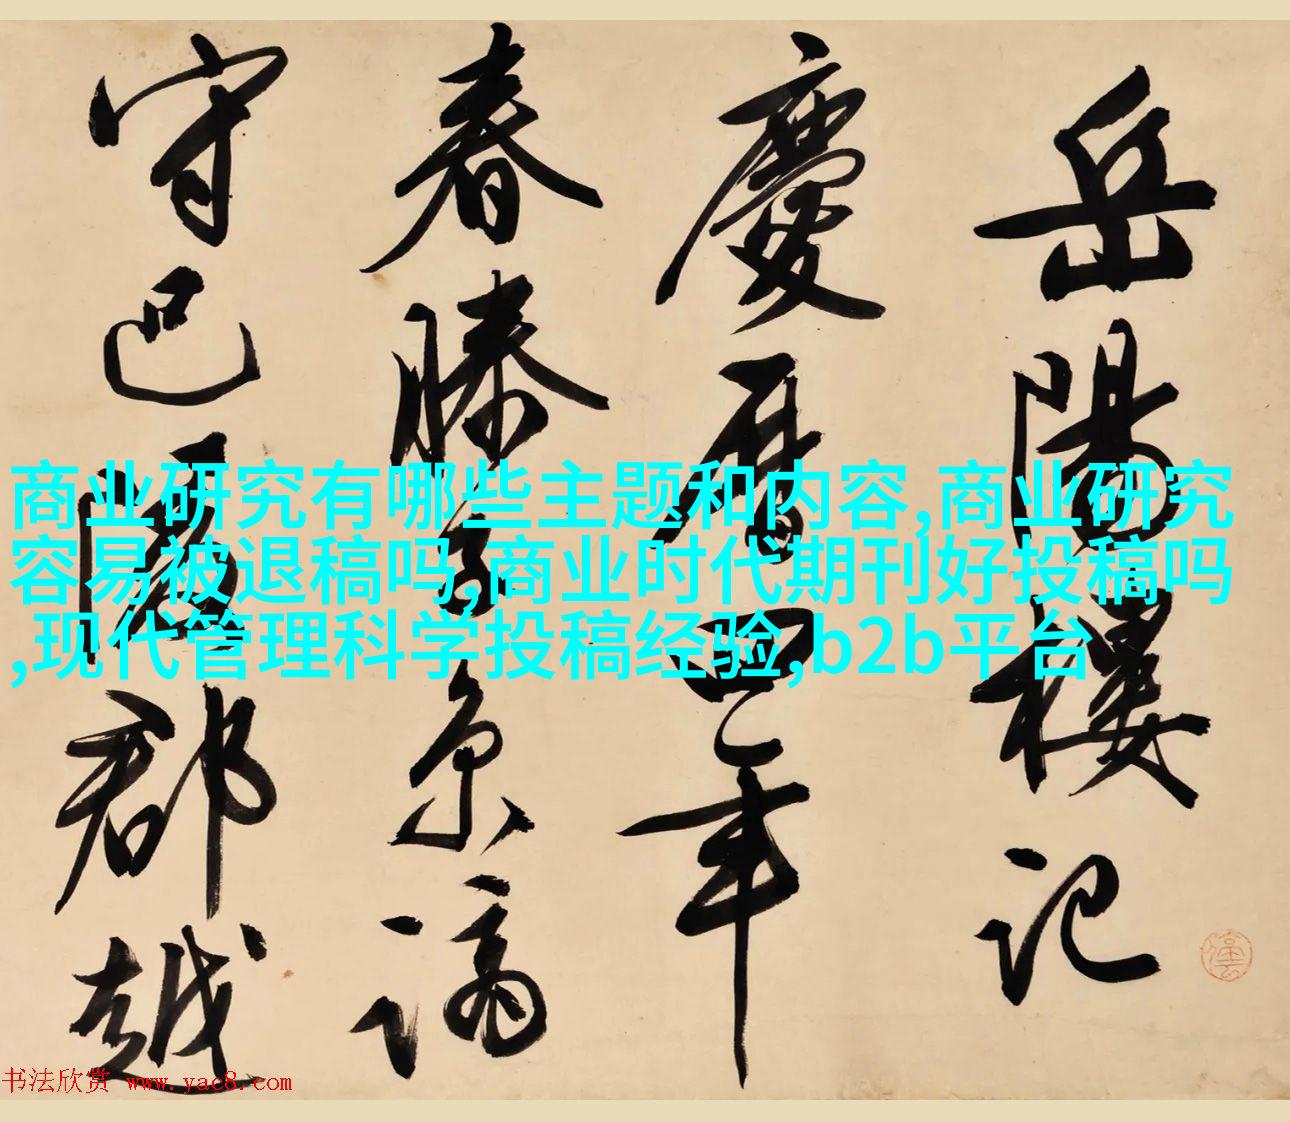 岳陽樓記
慶曆四年
春滕子京謫
守巴陵郡越
商业研究有哪些主题和内容,商业研究
容易被退稿吗,商业时代期刊好投稿吗
,现代管理科学投稿经验,b2b平台
书法欣赏 www.yac8.com